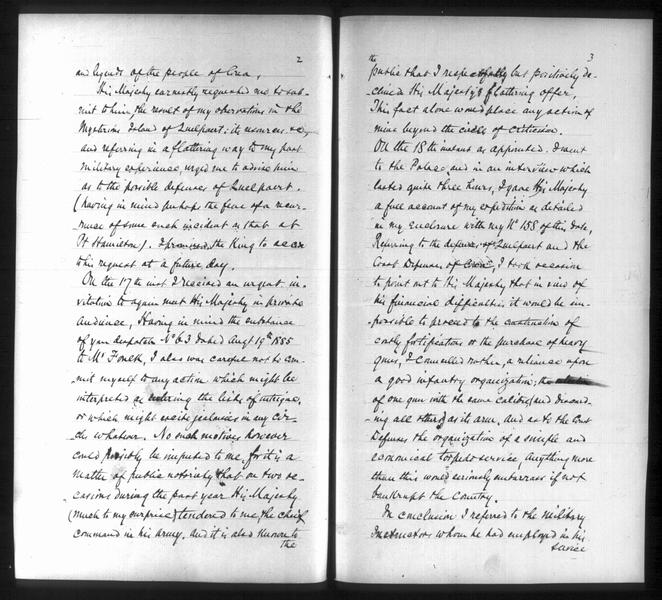 2
and legends of the people of Corea,
His Majesty earnestly requested me to sub-
mit to him, the result of my observations in the
Mysterious Island of Quelpaert: its resources &c
and referring in a flattering way to my past
military experience, urged me to advise him
as to the possible defenses of Quelpaert.
(having in mind perhaps the fear of a recur-
rence of some such incident as that at
Pt Hamilton). I promised the King to accede
to his request at a future day.
On the 17th inst I received an urgent in-
vitation to again meet His Majesty in private
audience, Having in mind the substance
of your despatch No 63 dated Augt 19th 1885
to Mr Foulk, I also was careful not to com-
mit myself to any action which might be
interpreted as entering the lists of intrigue,
or which might excite jealousies in any cir-
cle whatever. No such motives however
could possibly be imputed to me, for it is a
matter of public notoriety that on two oc-
casions during the past year His Majesty
(much to my surprise) tendered to me, the chief
command in his Army. And it is also known to
the
3
the
public that I respectfully but positively de-
clined His Majesty's flattering offer,
This fact alone would place any action of
mine beyond the circle of criticism.
On the 18th instant as appointed. I went
to the Palace, and in an interview which
lasted quite three hours, I gave His Majesty
a full account of my expedition as detailed
in my enclosure with my No 158 of this date,
Referring to the defenses of Quelpaert and the
Coast Defenses of Corea, I took occasion
to point out to His Majesty, that in view of
his financial difficulties it would be im-
possible to proceed to the construction of
costly fortifications or the purchase of heavy
guns, I counselled rather, a reliance upon
a good infantry organization; the
of one gun with the same calibre, and discard-
ing all others) as its arm. And as to the Coast
Defenses the organization of a simple and
economical torpedo service, Anything more
than this would seriously embarrass if not
bankrupt the Country.
In conclusion I referred to the Military
Instructors whom he had employed in his
service